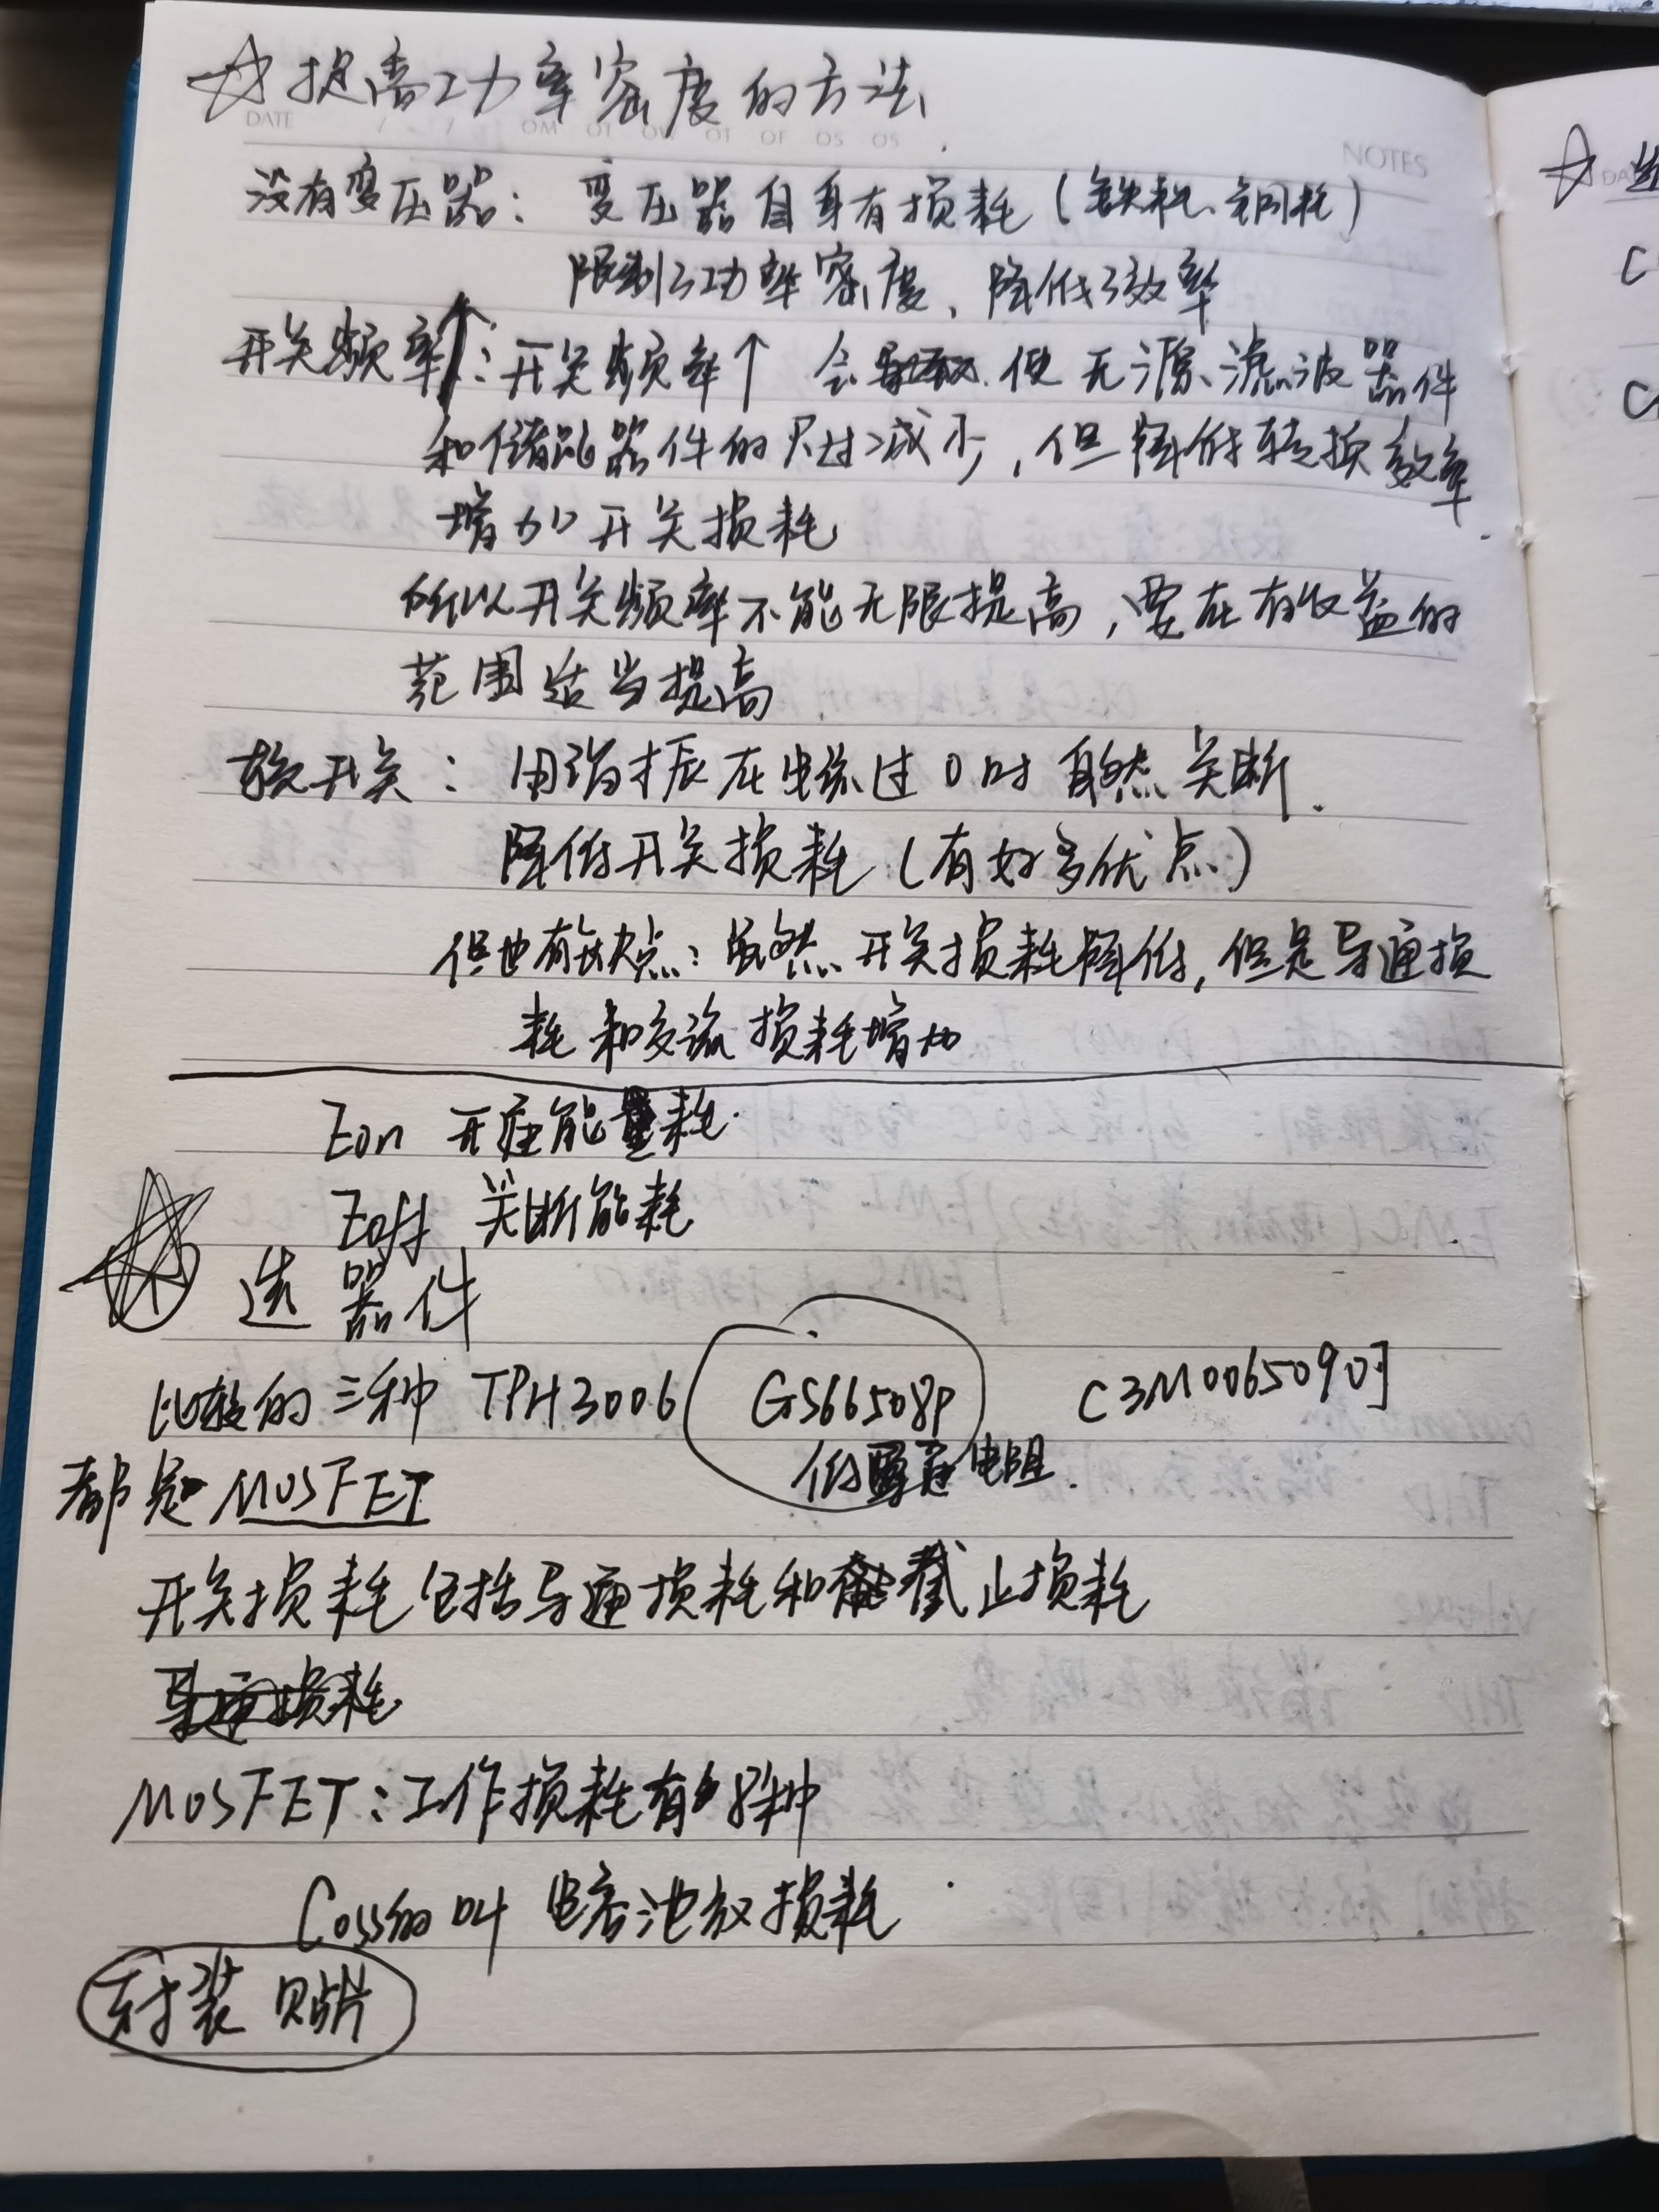 ☆提高功率密度的方法
DATE
NOTES
没有变压器：变压器自身有损耗（铁耗、铜耗）
限制了功率密度、降低了效率
开关频率↑：开关频率↑ 会 使无源、滤波器件
和储能器件的尺寸减少，但降低转换效率
增加开关损耗
所以开关频率不能无限提高，要在有收益的
范围适当提高
软开关：用谐振在电流过0时自然关断．
降低开关损耗（有好多优点）
但也有缺点：虽然开关损耗降低，但是导通损
耗和交流损耗增加
Eon 开 能量耗
Eoff 关断能耗
☆ 选器件
比较的三种 TPH3006 GS66508P C3M0065090J
低 电阻．
都是MOSFET
开关损耗包括导通损耗和截止损耗
导通损耗
MOSFET：工作损耗有8种
Coss的 电容 放损耗
封装 贴片